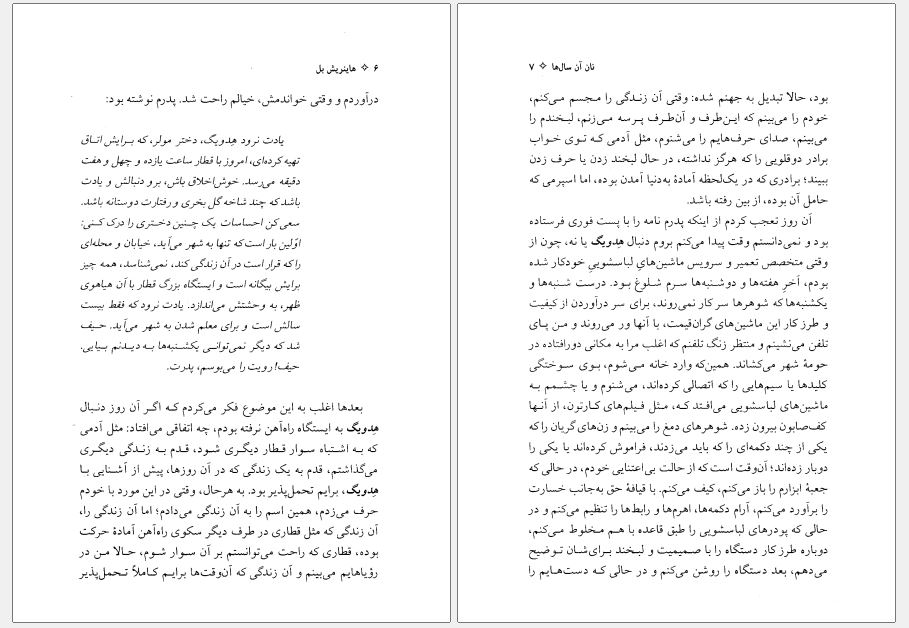 ۶ ✧ هاینریش بل
درآوردم و وقتی خواندمش، خیالم راحت شد. پدرم نوشته بود:
یادت نرود هِدویگ، دختر مولر، که بـرایش اتـاق
تهیه کرده‌ای، امروز با قطار ساعت یازده و چهل و هفت
دقیقه می‌رسد. خوش‌اخلاق باش، برو دنبالش و یادت
باشد که چند شاخه گل بخری و رفتارت دوستانه باشد.
سعی کن احساسات یک چـنین دخـتری را درک کـنی:
اوّلین بار است که تنها به شهر می‌آید، خیابان و محله‌ای
را که قرار است در آن زندگی کند، نمی‌شناسد، همه چیز
برایش بیگانه است و ایستگاه بزرگ قطار با آن هیاهوی
ظهر، به وحشتش می‌اندازد. یادت نرود که فقط بیست
سالش است و برای معلم شدن به شهر می‌آید. حـیف
شد که دیگر نمی‌توانـی یکشـنبه‌ها بـه دیـدنم بیایی.
حیف! رویت را می‌بوسم، پدرت.
بعدها اغلب به این موضوع فکر می‌کردم کـه اگـر آن روز دنبال
هِدویگ به ایستگاه راه‌آهن نرفته بودم، چه اتفاقی می‌افتاد: مثل آدمی
که بـه اشـتباه سـوار قـطار دیگـری شـود، قـدم بـه زنـدگی دیگـری
می‌گذاشتم، قدم به یک زندگی که در آن روزها، پیش از آشنایی بـا
هِدویگ، برایم تحمل‌پذیر بود. به هرحال، وقتی در این مورد با خودم
حرف می‌زدم، همین اسم را به آن زندگی می‌دادم؛ اما آن زندگی را،
آن زندگی که مثل قطاری در طرف دیگر سکوی راه‌آهن آمادهٔ حرکت
بوده، قطاری که راحت می‌توانستم بر آن سـوار شوم، حـالا مـن در
رؤیاهایم می‌بینم و آن زندگی که آن‌وقت‌ها برایم کـاملاً تـحمل‌پذیر
نان آن سال‌ها ✧ ۷
بود، حالا تبدیل به جهنم شده: وقتی آن زنـدگی را مـجسم مـی‌کنم،
خودم را می‌بینم که ایـن‌طرف و آن‌طرف پـرسه مـی‌زنم، لبـخندم را
می‌بینم، صدای حرف‌هایم را می‌شنوم، مثل آدمی کـه تـوی خـواب
برادر دوقلویی را که هرگز نداشته، در حال لبخند زدن یا حرف زدن
ببیند؛ برادری که در یک‌لحظه آمادهٔ به‌دنیا آمدن بوده، اما اسپرمی که
حامل آن بوده، از بین رفته باشد.
آن روز تعجب کردم از اینکه پدرم نامه را با پست فوری فرستاده
بود و نمی‌دانستم وقت پیدا می‌کنم بروم دنبال هِدویگ یا نه، چون از
وقتی متخصص تعمیر و سرویس ماشین‌هایِ لباسشوییِ خودکار شده
بودم، آخرِ هفته‌ها و دوشـنبه‌ها سـرم شـلوغ بـود. درست شـنبه‌ها و
یکشنبه‌ها که شوهرها سر کار نمی‌روند، برای سر درآوردن از کیفیت
و طرز کار این ماشین‌های گران‌قیمت، با آنها ور می‌روند و من پـای
تلفن می‌نشینم و منتظر زنگ تلفنم که اغلب مرا به مکانی دورافتاده در
حومهٔ شهر می‌کشاند. همین‌که وارد خانه مـی‌شوم، بـوی سـوختگی
کلیدها یا سیم‌هایی را که اتصالی کرده‌اند، می‌شنوم و یا چشـمم بـه
ماشین‌های لباسشویی می‌افـتد کـه، مـثل فیلم‌های کـارتون، از آنـها
کف‌صابون بیرون زده. شوهرهای دمغ را می‌بینم و زن‌های گریان را که
یکی از چند دکمه‌ای را که باید می‌زدند، فراموش کرده‌اند یا یکی را
دوبار زده‌اند؛ آن‌وقت است که از حالت بی‌اعتنایی خودم، در حالی که
جعبهٔ ابزارم را باز می‌کنم، کیف می‌کنم. با قیافهٔ حق به‌جانب خسارت
را برآورد می‌کنم، آرام دکمه‌ها، اهرم‌ها و رابط‌ها را تنظیم می‌کنم و در
حالی که پودرهای لباسشویی را طبق قاعده با هـم مـخلوط مـی‌کنم،
دوباره طرز کار دستگاه را با صـمیمیت و لبـخند بـرای‌شان تـوضیح
می‌دهم، بعد دستگاه را روشن می‌کنم و در حالی که دست‌هـایم را